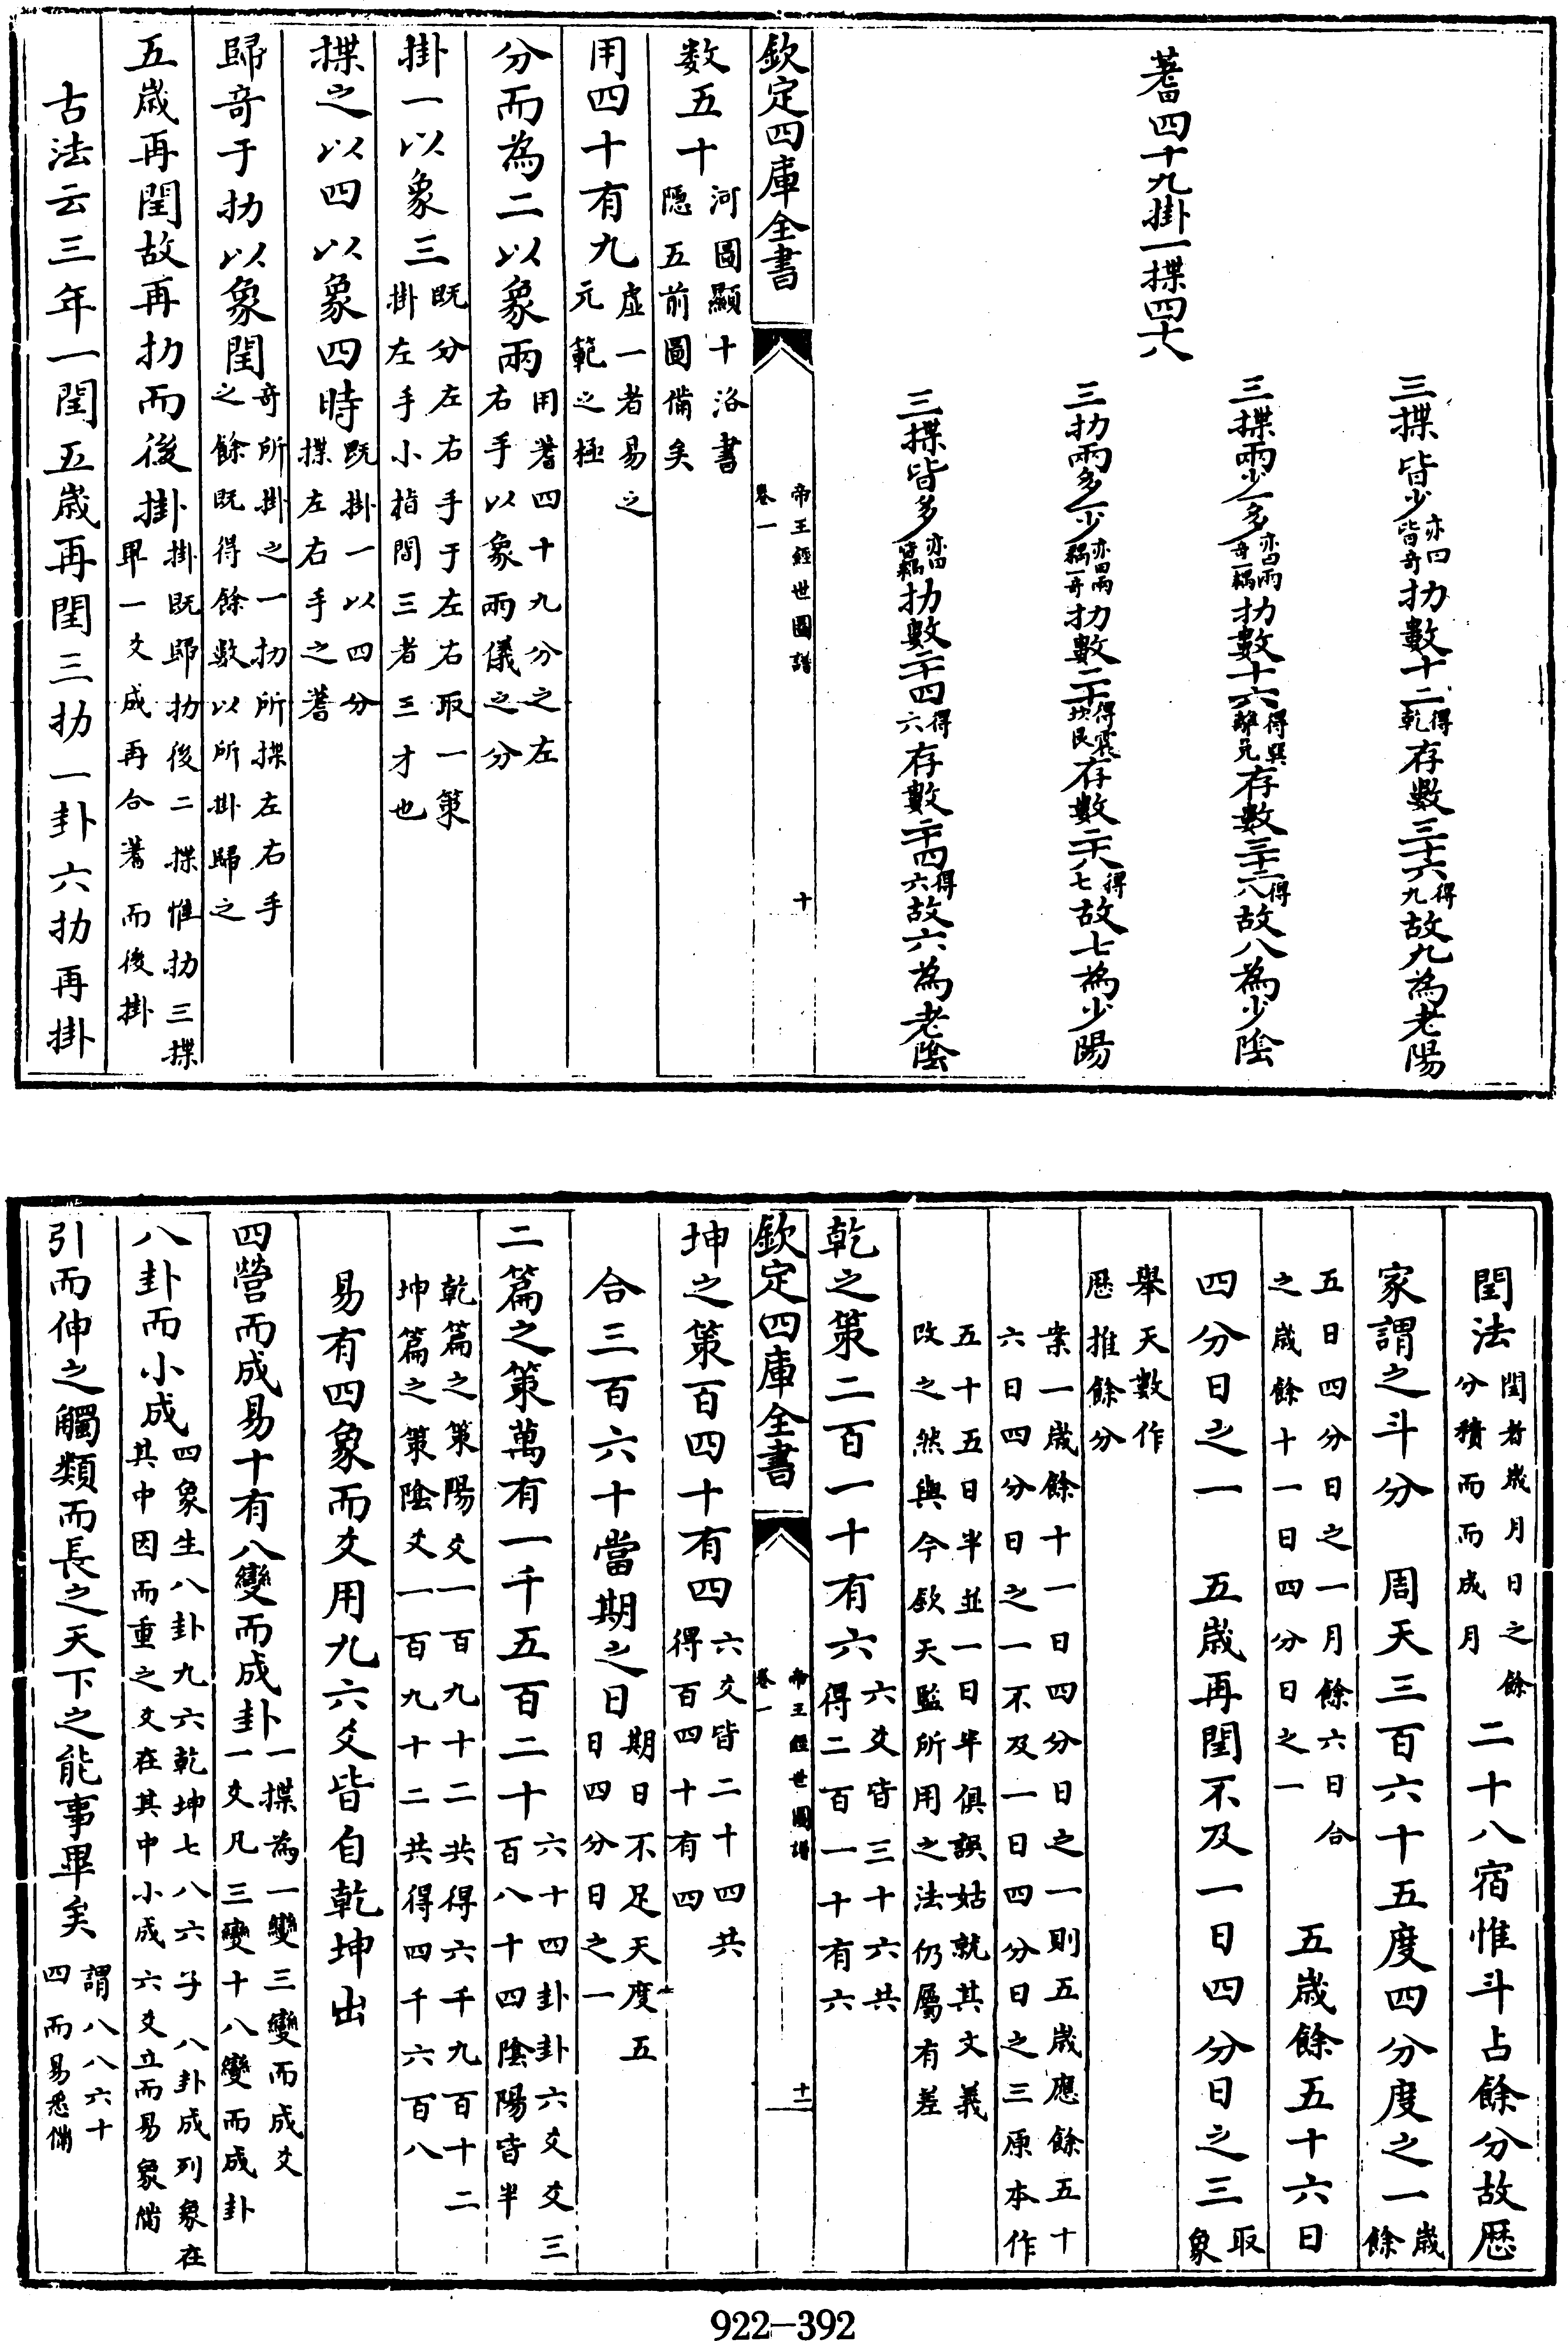 蓍四十九掛一揲四十八
三揲皆少亦曰皆奇扐數十二得乾存數三十六得九故九為老陽
三揲兩少一多亦曰兩奇一耦扐數十六得巽離兌存數三十二得八故八為少陰
三扐兩多一少亦曰兩耦一奇扐數二十得震坎艮存數二十八得七故七為少陽
三揲皆多亦曰皆耦扐數二十四得六存數二十四得六故六為老陰
欽定四庫全書
帝王經世圖譜
卷一
十
数五十河圖顯十洛書隱五前圖備矣
用四十有九虛一者易之元範之極
分而為二以象兩用蓍四十九分之左右手以象兩儀之分
掛一以象三既分左右手于左右取一策掛左手小指間三者三才也
揲之以四以象四時既掛一以四分揲左右手之蓍
歸奇于扐以象閏奇所掛之一扐所揲左右手之餘既得餘數以所掛歸之
五歲再閏故再扐而後掛掛既歸扐後二揲惟扐三揲畢一爻成再合蓍而後掛
古法云三年一閏五歲再閏三扐一卦六扐再掛
閏法閏者歲月日之餘分積而而成月二十八宿惟斗占餘分故厯
家謂之斗分 周天三百六十五度四分度之一歲餘
五日四分日之一月餘六日合之歲餘十一日四分日之一 五歲餘五十六日
四分日之一 五歲再閏不及一日四分日之三取象
舉天數作厯推餘分
案一歲餘十一日四分日之一則五歲應餘五十
六日四分日之一不及一日四分日之三原本作
五十五日半並一日半俱誤姑就其文義
改之然與今欽天監所用之法仍屬有差
乾之策二百一十有六六爻皆三十六共得二百一十有六
欽定四庫全書
帝王經世圖譜
卷一
十一
坤之策百四十有四六爻皆二十四共得百四十有四
合三百六十當期之日期日不足天度五日四分日之一
二篇之策萬有一千五百二十六十四卦卦六爻爻三百八十四陰陽皆半
乾篇之策陽爻一百九十二共得六千九百十二
坤篇之策陰爻一百九十二共得四千六百八
易有四象而爻用九六爻皆自乾坤出
四營而成易十有八變而成卦一揲為一變三變而成爻一爻凡三變十八變而成卦
八卦而小成四象生八卦九六乾坤七八六子八卦成列象在其中因而重之爻在其中小成六爻立而易象備
引而伸之觸類而長之天下之能事畢矣謂八八六十四而易悉備
922-392